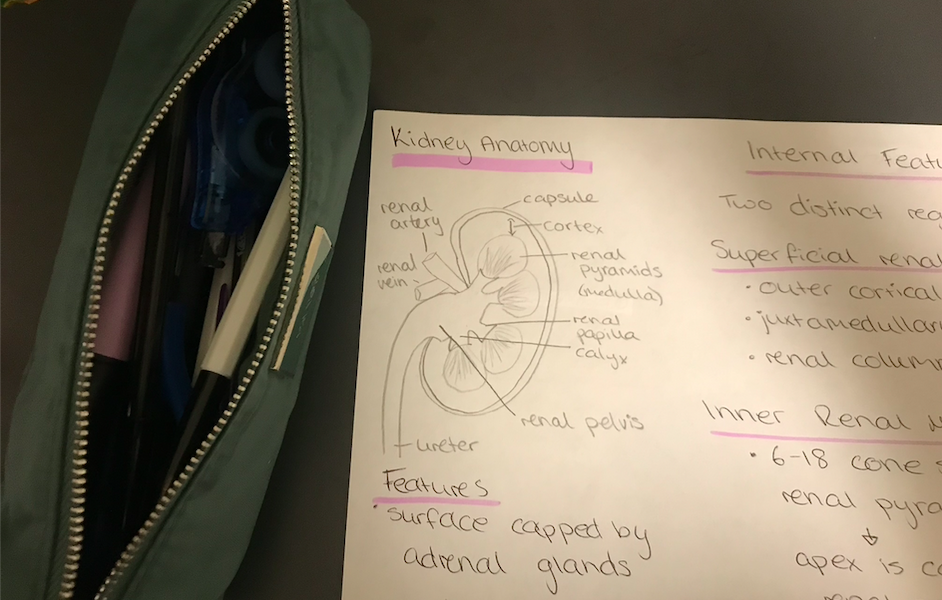 Kidney Anatomy
capsule
renal
artery
cortex
renal
vein
renal
pyramids
(medulla)
renal
papilla
calyx
renal pelvis
ureter
Features
• surface capped by
adrenal glands
Internal Featu
Two distinct reg
Superficial renal
• outer cortical
• juxtamedullar
• renal column
Inner Renal
• 6-18 cone
renal pyra
↓
apex is co